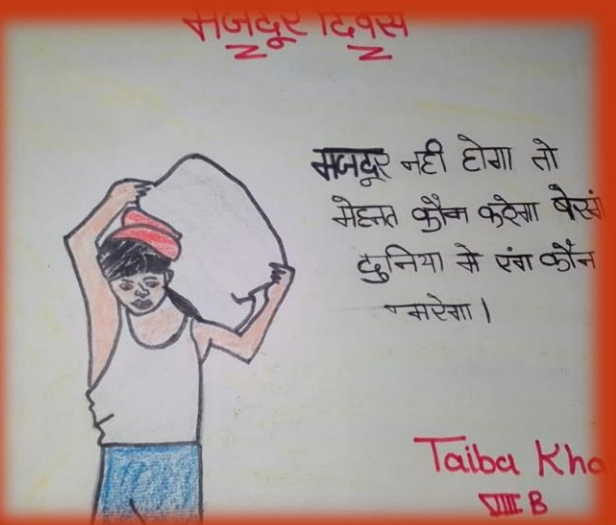 मजदूर दिवस
मजदूर नही होगा तो
मेहनत कौन करेगा बेरंग
दुनिया मे रंग कौन
भरेगा।
Taiba Kha
VIII B